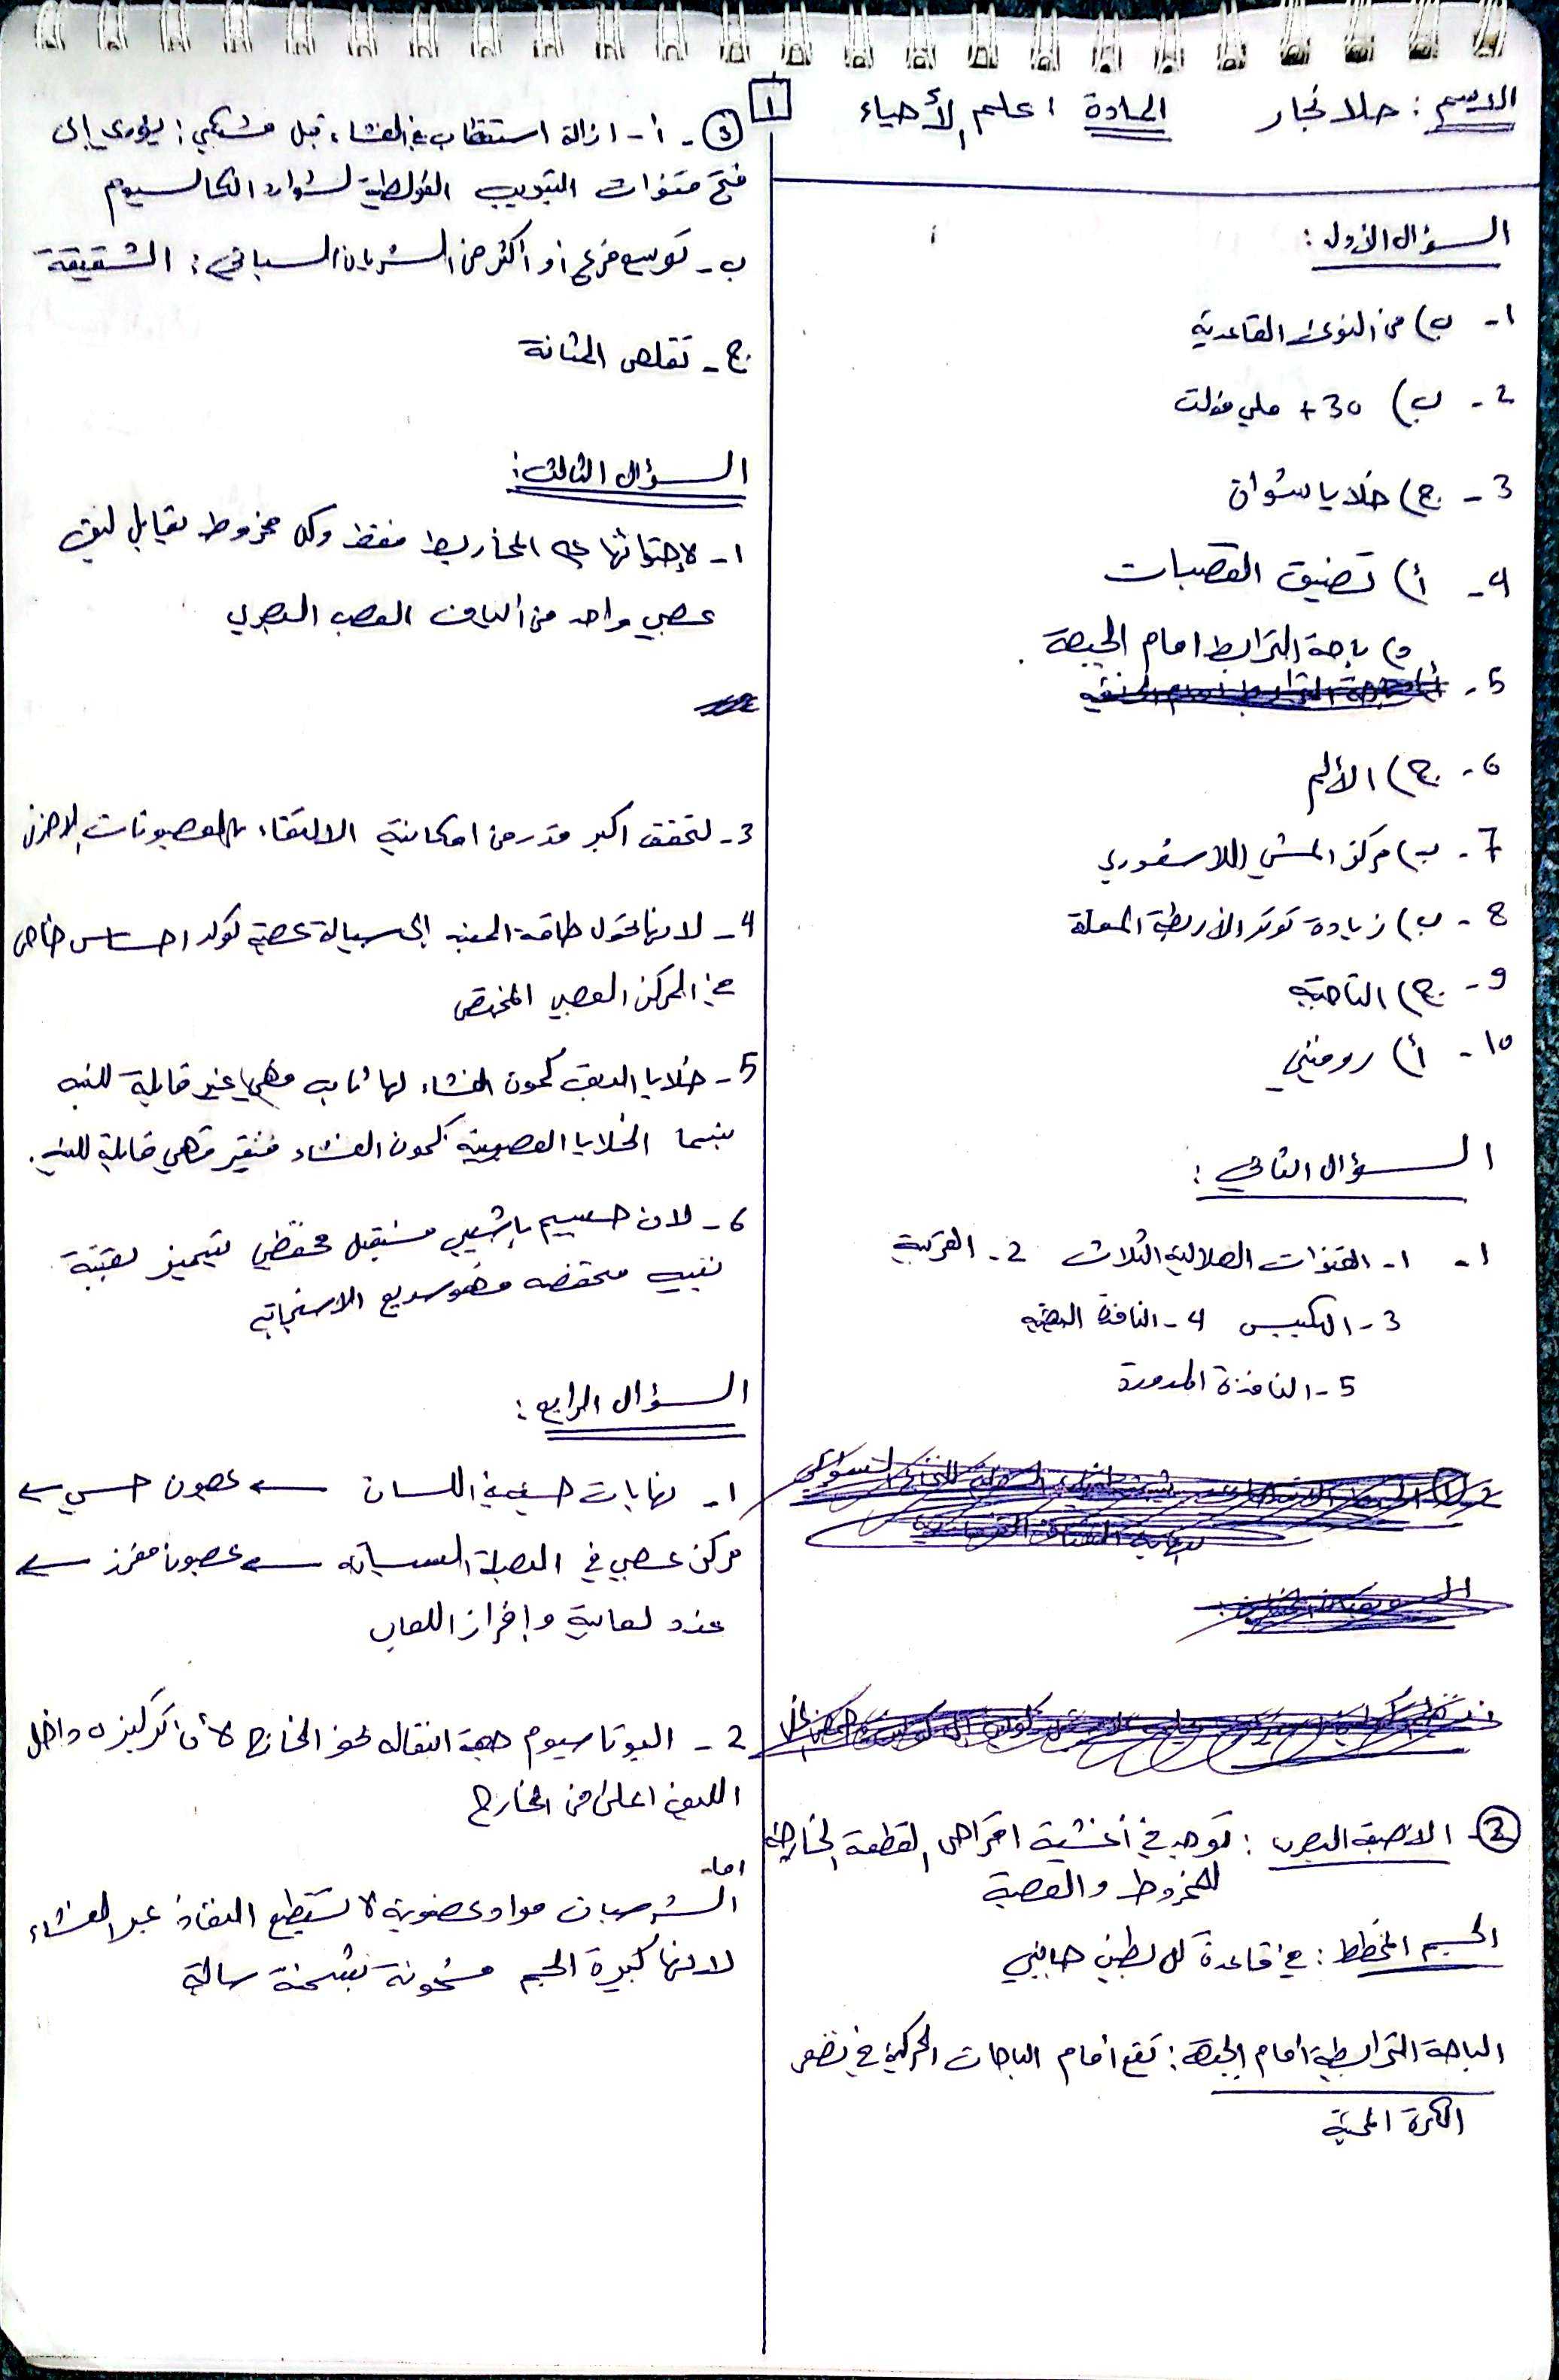 الاسم : حلا نجار
المادة : علم الأحياء
1
السؤال الأول :
1- ب) من النوى القاعدية
2- ب) 30+ ملي فولت
3- ج) خلايا شوان
4- أ) تضيق القصبات
5- د) باحة الترابط امام الجبهية .
6- ج) الألم
7- ب) مركز المشي اللاشعوري
8- ب) زيادة توتر الاربطة المعلقة
9- ج) التاجية
10- أ) رومنيني
السؤال الثاني :
1- 1- القنوات الهلالية الثلاث 2- القريبة
3- الكييس 4- النافذة البيضية
5- النافذة المدورة
2- الاصبغة البصرية : توجد في أغشية اقراص القطعة الخارجية
للمخروط والعصية
الجسم المخطط : في قاعدة كل بطين جانبي
الباحة الترابطية أمام الجبهية : تقع أمام الباحات الحركية في نصفي
الكرة المخية
3- أ- ازالة استقطاب في الغشاء قبل مشبكي : يؤدي إلى
فتح قنوات التبويب الفولطية لشوارد الكالسيوم
ب- توسع فرع أو أكثر من الشريان السباتي : الشقيقة
ج- تقلص المثانة
السؤال الثالث :
1- لاحتوائها على المخاريط فقط وكل مخروط يقابل ليف
عصبي واحد من ألياف العصب البصري
3- لتحقق اكبر قدر من امكانية الالتقاء بالعصبونات الاخرى
4- لانها تحول طاقة المنبه إلى سيالة عصبية تولد احساس خاص
في المركز العصبي المختص
5- خلايا الدبق كمون الغشاء لها ثابت فهي غير قابلة للتنبه
بينما الخلايا العصبونية كمون الغشاء متغير فهي قابلة للتنبه .
6- لان جسيم باشيني مستقبل محفظي يتميز بعتبة
تنبيه منخفضة فهو سريع الاستجابة
السؤال الرابع :
1- نهايات حسية في اللسان ← عصبون حسي ←
مركز عصبي في البصلة السيسائية ← عصبون مفرز ←
غدد لعابية وإفراز اللعاب
2- البوتاسيوم جهة انتقاله نحو الخارج لأن تركيزه داخل
الليف اعلى من الخارج
اما
الشرسبات مواد عضوية لا تستطيع النفاذ عبر الغشاء
لانها كبيرة الحجم مشحونة بشحنة سالبة